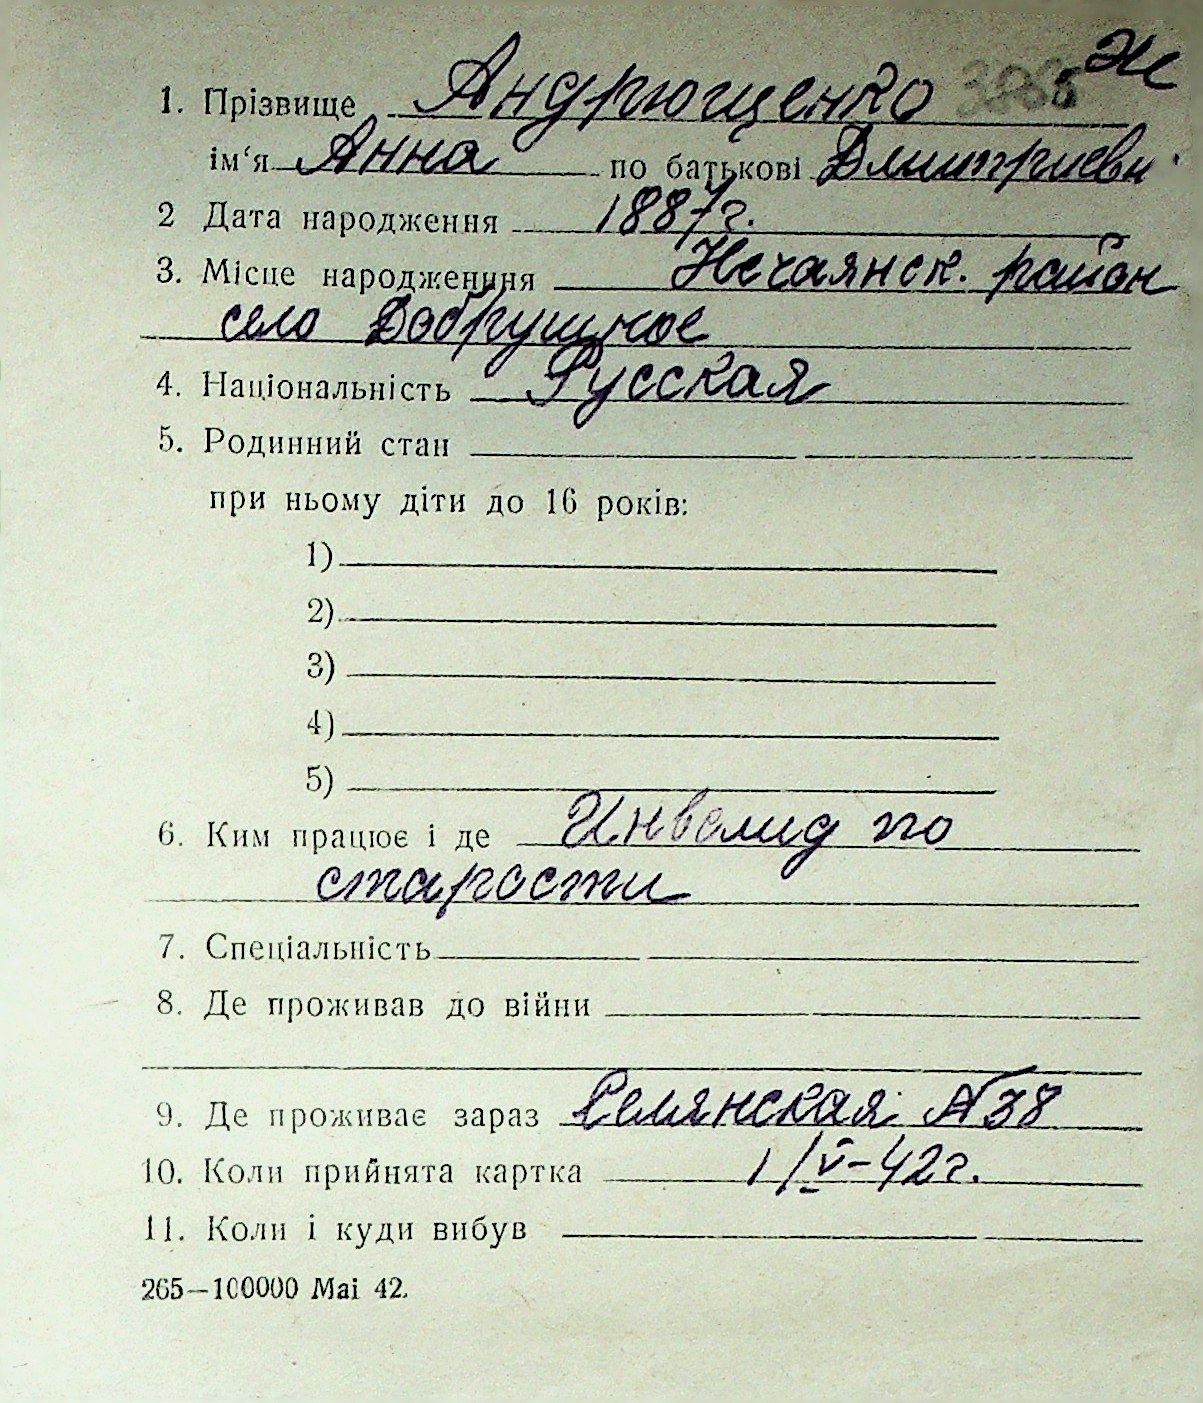 Ж
1. Прізвище Андрющенко
ім‘я Анна по батькові Дмитриевн
2 Дата народження 1887г.
3. Місце народженння Нечаянск. район
село Добрушное
4. Національність Русская
5. Родинний стан
при ньому діти до 16 років:
1)
2)
3)
4)
5)
6. Ким працює і де Инвалид по
старости
7. Спеціальність
8. Де проживав до війни
9. Де проживає зараз Селянская №38
10. Коли прийнята картка 1/V-42г.
11. Коли і куди вибув
265—100000 Mai 42.